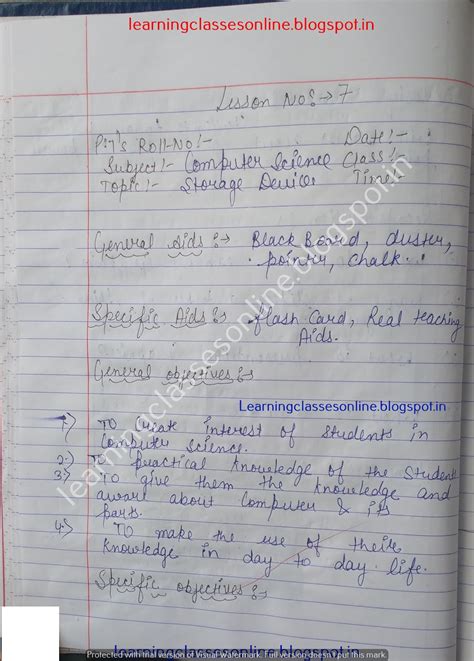 learningclassesonline.blogspot.in
Lesson No:→7
P.T's Roll-No:- Date:-
Subject:- Computer Science Class:-
Topic:- Storage Device Time:-
General Aids:→ Black Board, duster,
pointer, chalk.
Specific Aids:→ flash Card, Real teaching
Aids.
General objectives:→
Learningclassesonline.blogspot.in
1.) To creat interest of Students in
Computer Science.
2.) To practical knowledge of the Student
3.) To give them the knowledge and
aware about Computer & its
parts.
4.) To make the use of their
knowledge in day to day life.
Specific objectives:→
learningclassesonline.blogspot.in
learningclassesonline.blogspot.in
Protected with trial version of Visual Watermark. Full version doesn't put this mark.